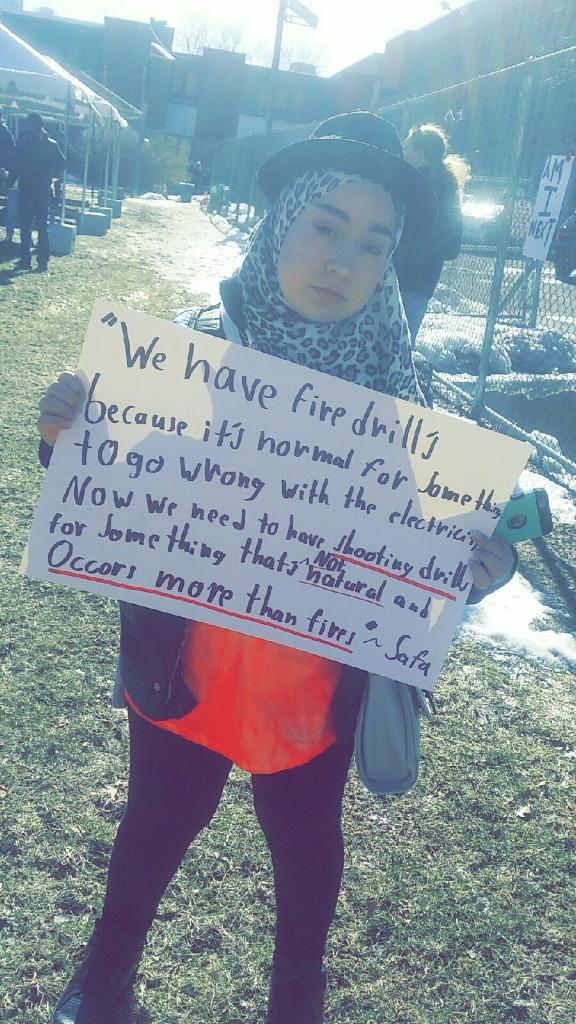 "We have fire drills
because it's normal for something
to go wrong with the electricity
Now we need to have shooting drills
for something that's Not natural and
Occors more than fires" ~ Safa
AM
I